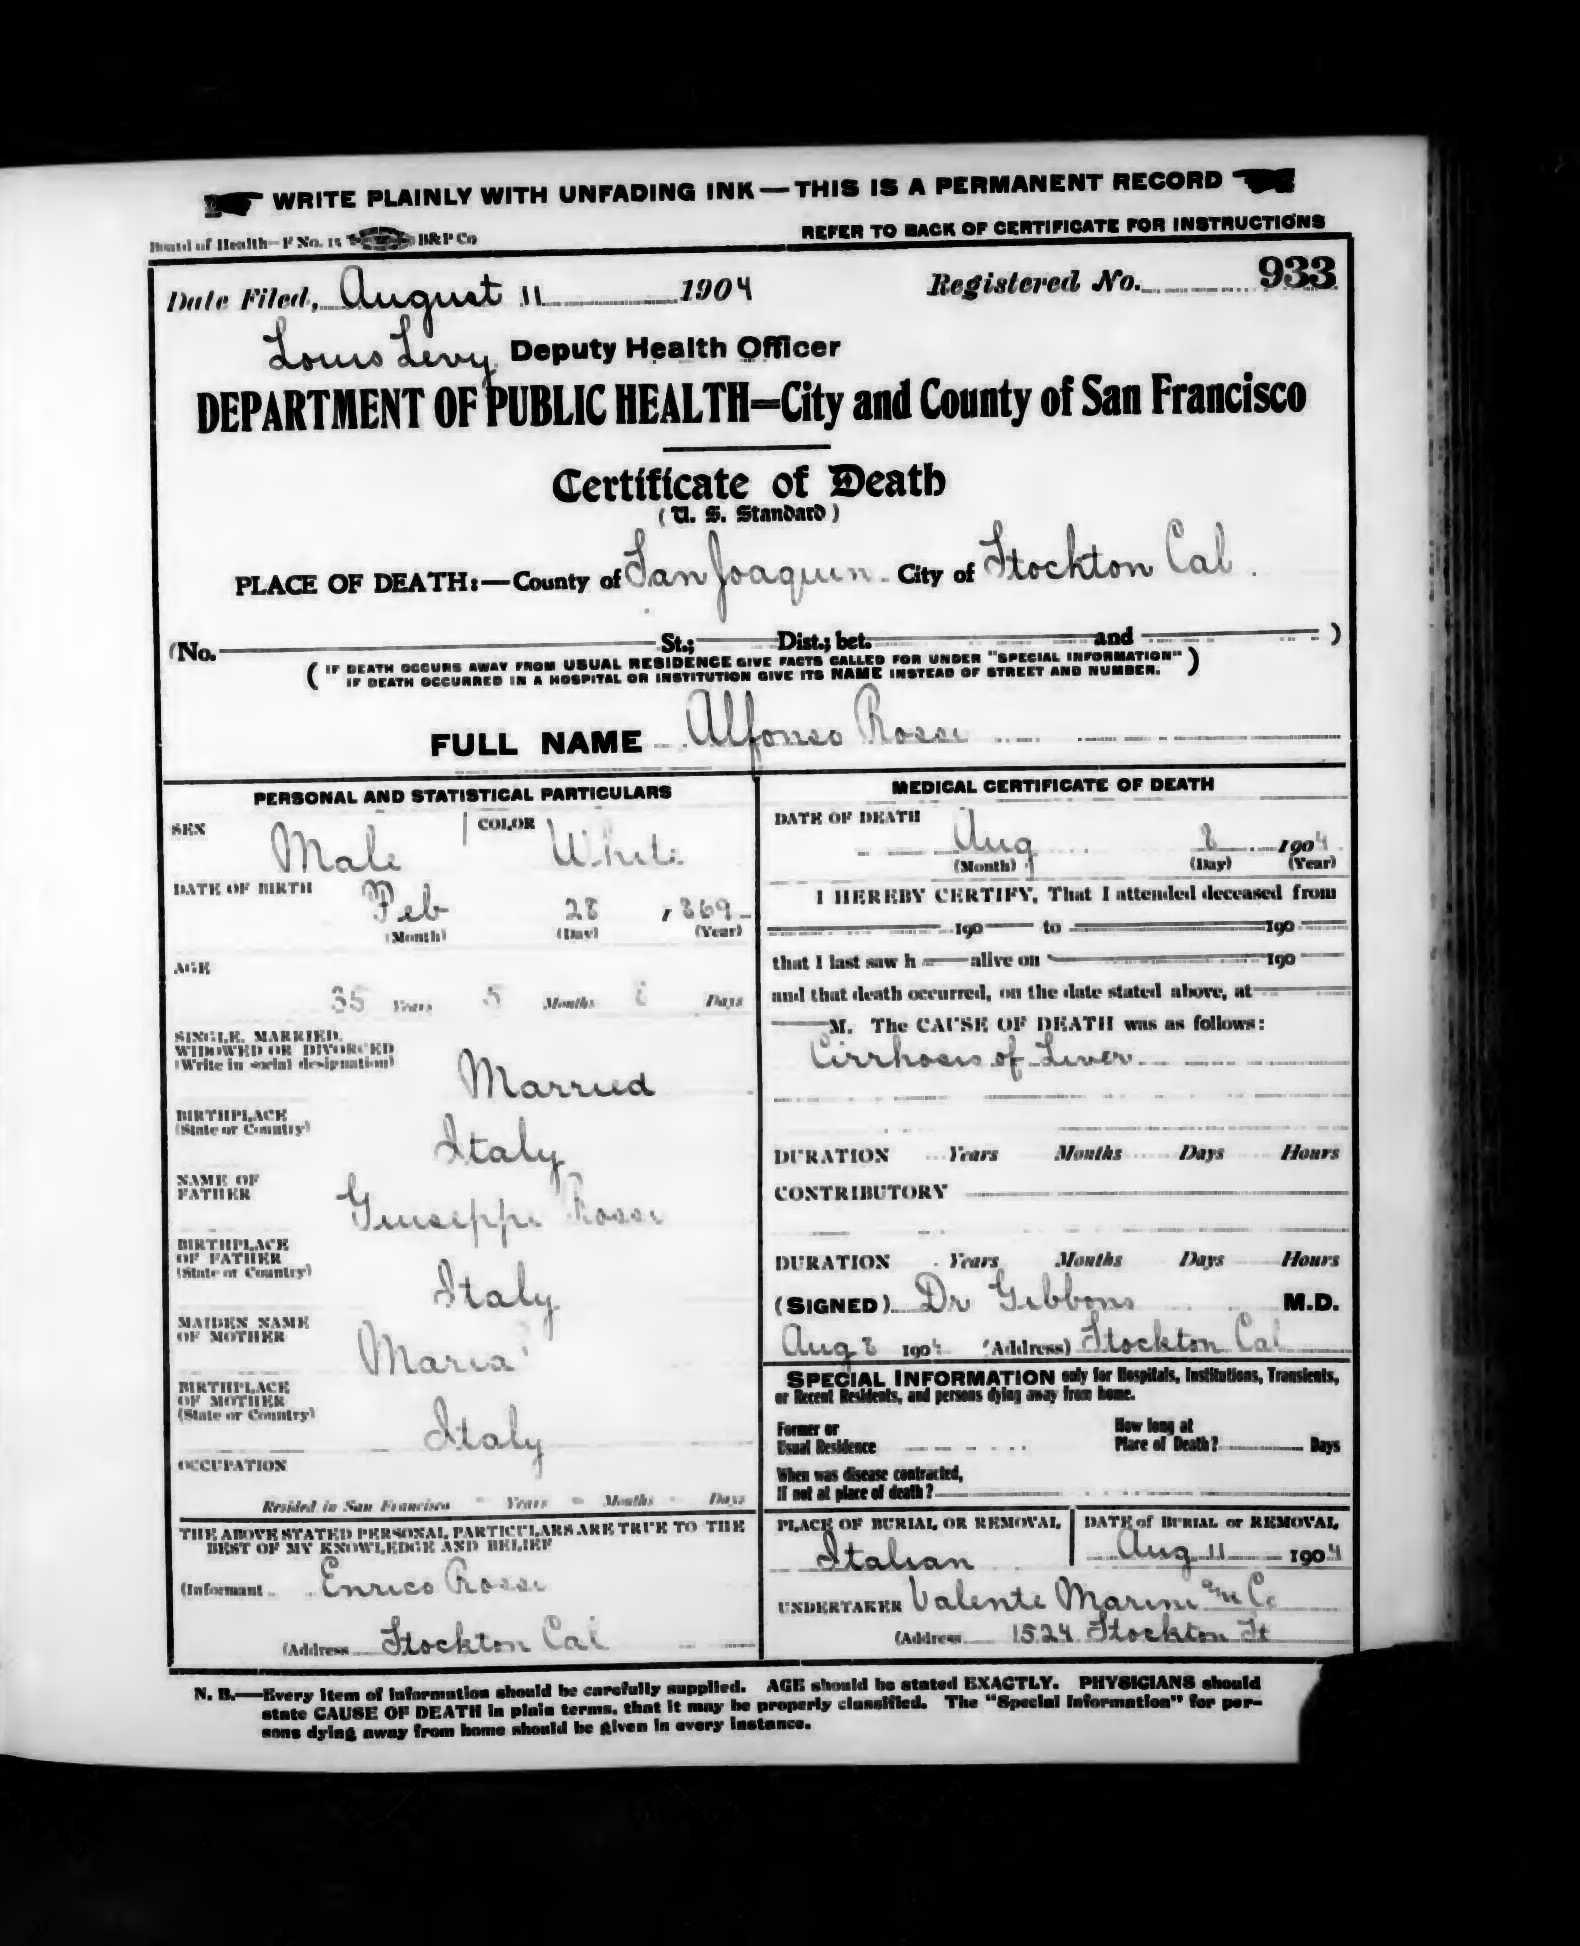 WRITE PLAINLY WITH UNFADING INK — THIS IS A PERMANENT RECORD
Board of Health—F No. 15 B&P Co
REFER TO BACK OF CERTIFICATE FOR INSTRUCTIONS
Date Filed, August 11 1904 Registered No. 933
Louis Levy Deputy Health Officer
DEPARTMENT OF PUBLIC HEALTH=City and County of San Francisco
Certificate of Death
(U. S. Standard)
PLACE OF DEATH:—County of San Joaquin City of Stockton Cal.
(No. St.; Dist.; bet. and )
( IF DEATH OCCURS AWAY FROM USUAL RESIDENCE GIVE FACTS CALLED FOR UNDER "SPECIAL INFORMATION" )
IF DEATH OCCURRED IN A HOSPITAL OR INSTITUTION GIVE ITS NAME INSTEAD OF STREET AND NUMBER.
FULL NAME Alfonso Rossi
PERSONAL AND STATISTICAL PARTICULARS
SEX Male COLOR White
DATE OF BIRTH Feb 28 1869
(Month) (Day) (Year)
AGE
35 Years 5 Months Days
SINGLE, MARRIED,
WIDOWED OR DIVORCED
(Write in social designation)
Married
BIRTHPLACE
(State or Country)
Italy
NAME OF
FATHER
Giuseppi Rossi
BIRTHPLACE
OF FATHER
(State or Country)
Italy
MAIDEN NAME
OF MOTHER
Maria
BIRTHPLACE
OF MOTHER
(State or Country)
Italy
OCCUPATION
Resided in San Francisco Years Months Days
THE ABOVE STATED PERSONAL PARTICULARS ARE TRUE TO THE
BEST OF MY KNOWLEDGE AND BELIEF
(Informant Enrico Rossi
(Address Stockton Cal
MEDICAL CERTIFICATE OF DEATH
DATE OF DEATH
Aug 8 1904
(Month) (Day) (Year)
I HEREBY CERTIFY, That I attended deceased from
190 to 190
that I last saw h alive on 190
and that death occurred, on the date stated above, at
M. The CAUSE OF DEATH was as follows:
Cirrhosis of Liver
DURATION Years Months Days Hours
CONTRIBUTORY
DURATION Years Months Days Hours
(SIGNED) Dr Gibbons M.D.
Aug 8 1904 (Address) Stockton Cal
SPECIAL INFORMATION only for Hospitals, Institutions, Transients,
or Recent Residents, and persons dying away from home.
Former or
Usual Residence
How long at
Place of Death? Days
When was disease contracted,
If not at place of death?
PLACE OF BURIAL OR REMOVAL
Italian
DATE of BURIAL or REMOVAL
Aug 11 1904
UNDERTAKER Valente Marini Co
(Address 1524 Stockton St
N. B.—Every item of information should be carefully supplied. AGE should be stated EXACTLY. PHYSICIANS should
state CAUSE OF DEATH in plain terms, that it may be properly classified. The "Special Information" for per-
sons dying away from home should be given in every instance.